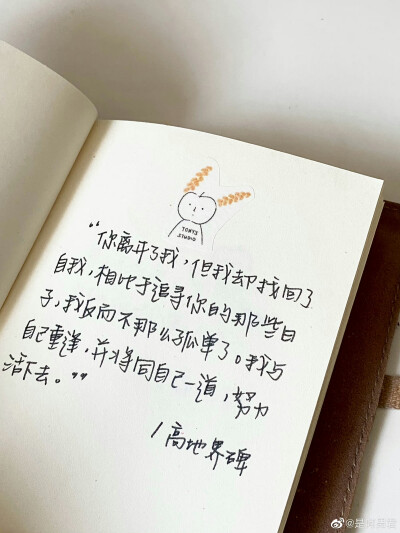 TONYS
STUDIO
“你离开了我,但我却找回了
自我,相比于追寻你的那些日
子,我反而不那么孤单了。我与
自己重逢,并将同自己一道,努力
活下去。”
/高地界碑